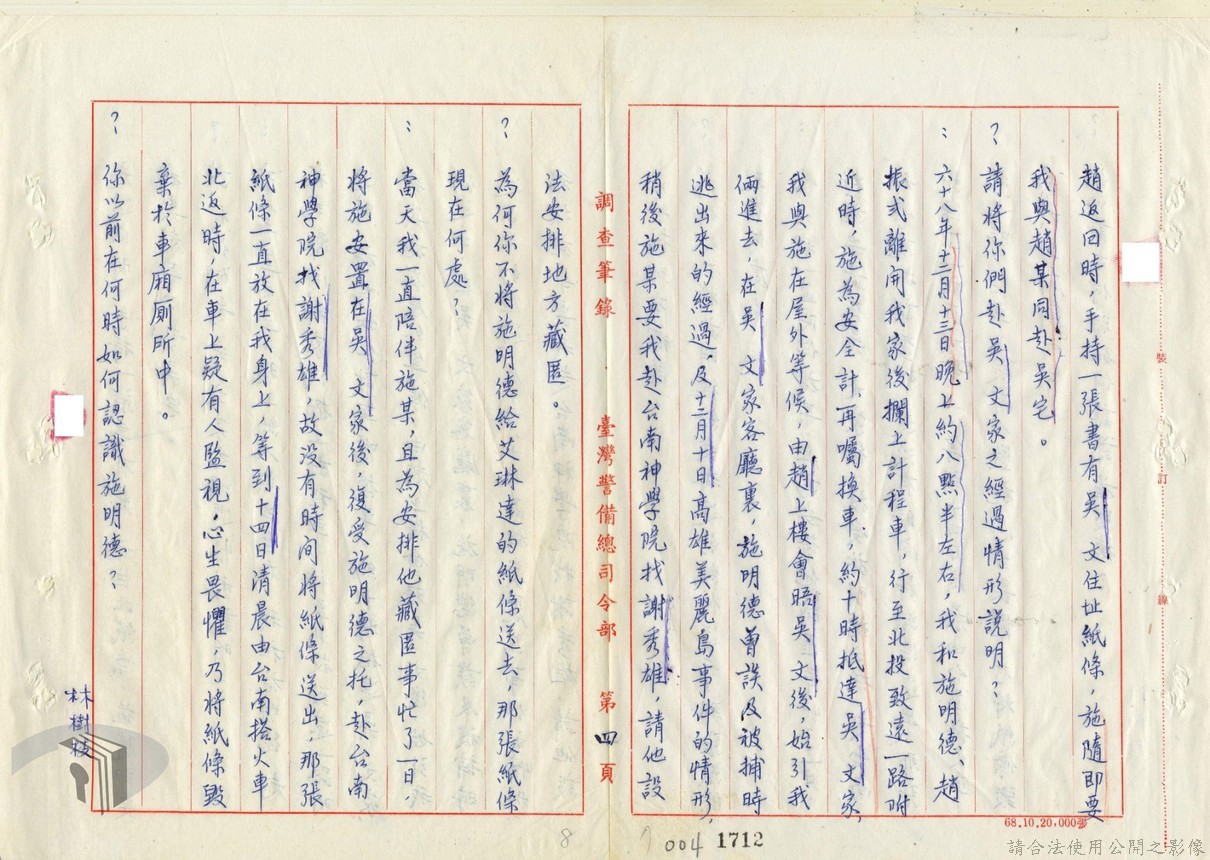 趙返回時，手持一張書有吳　文住址紙條，施隨即要
我與趙某同赴吳宅。
？請將你們赴吳　文家之經過情形説明？
：六十八年十二月十三日晚上約八點半左右，我和施明德、趙
振弍離開我家後攔上計程車，行至北投致遠一路附
近時，施為安全計，再囑換車，約十時抵達吳　文家，
我與施在屋外等候，由趙上樓會晤吳　文後，始引我
倆進去，在吳　文家客廳裏，施明德曾談及被捕時
逃出來的經過，及十二月十日高雄美麗島事件的情形，
稍後施某要我赴台南神學院找謝秀雄，請他設
調查筆錄　臺灣警備總司令部　第四頁
法安排地方藏匿。
？為何你不將施明德給艾琳達的紙條送去，那張紙條
現在何處？
：當天我一直陪伴施某，且為安排他藏匿事忙了一日，
將施安置在吳　文家後，復受施明德之托，赴台南
神學院找謝秀雄，故没有時间將紙條送出，那張
紙條一直放在我身上，等到十四日清晨由台南搭火車
北返時，在車上疑有人監視，心生畏懼，乃將紙條毀
棄於車廂厠所中。
？你以前在何時如何認識施明德？
林樹枝
裝
訂
線
68.10.20,000張
8
7
004
1712
請合法使用公開之影像